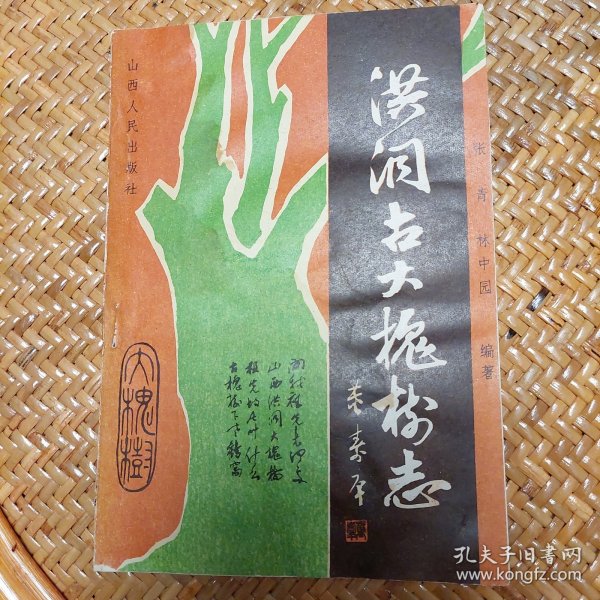 洪洞古大槐树志
董寿平
张青 林中园 编著
山西人民出版社
大槐树
问我祖先来何处
山西洪洞大槐树
祖先故居叫什么
古槐树下老鹳窝
孔夫子旧书网
www.kongfz.com